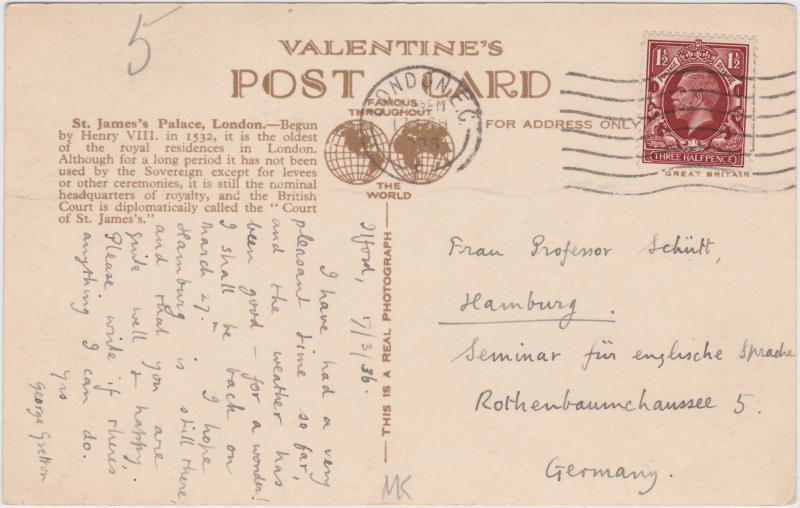 5
VALENTINE'S
POST CARD
FAMOUS
THROUGHOUT
THE
WORLD
FOR ADDRESS ONLY
LONDON. E.C.
36
1½ 1½
POSTAGE REVENUE
THREE HALFPENCE
GREAT BRITAIN
St. James's Palace, London.—Begun
by Henry VIII. in 1532, it is the oldest
of the royal residences in London.
Although for a long period it has not been
used by the Sovereign except for levees
or other ceremonies, it is still the nominal
headquarters of royalty, and the British
Court is diplomatically called the "Court
of St. James's."
—THIS IS A REAL PHOTOGRAPH—
Ilford, 17/3/36.
I have had a very
pleasant time so far,
and the weather has
been good – for a wonder!
I shall be back on
March 27. I hope
Hamburg is still there,
and that you are
quite well & happy.
Please write if theres
anything I can do.
Yrs
George Gretton
Frau Professor Schütt,
Hamburg.
Seminar für englische Sprache
Rothenbaumchaussee 5.
Germany.
MK